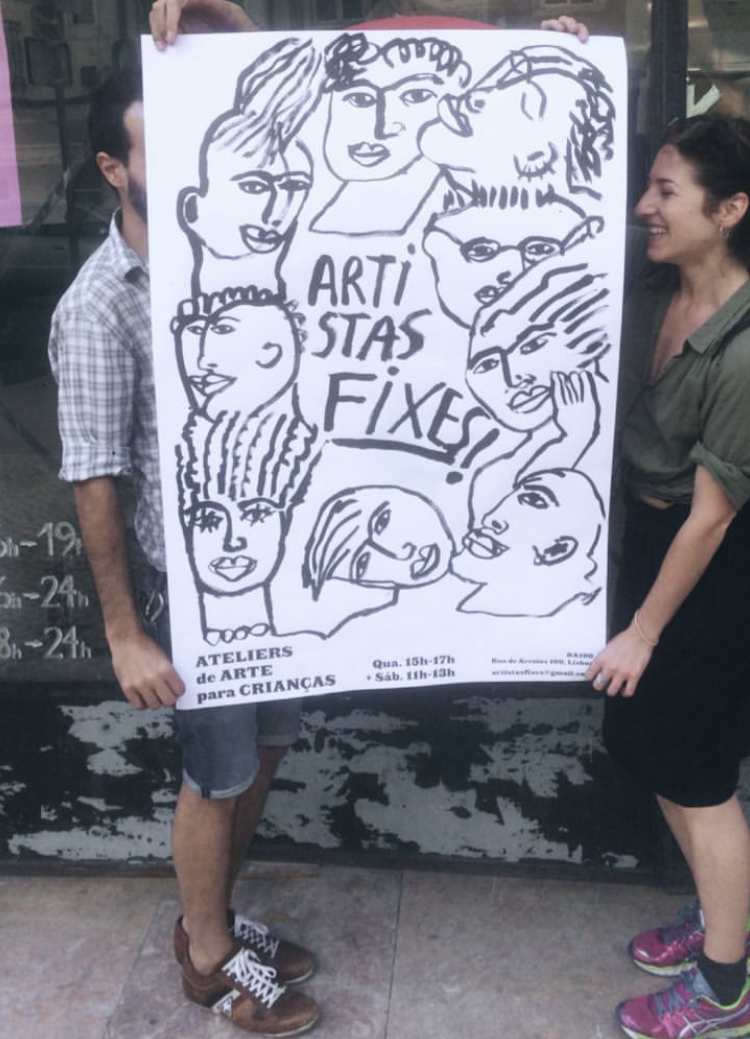 ARTi
STAS
FiXES!
ATELIERS
de ARTE
para CRIANÇAS
Qua. 15h-17h
+ Sáb. 11h-13h
Rua de Arroios 100, Lisboa
artistasfixes@gmail
h-19h
h-24h
8h-24h